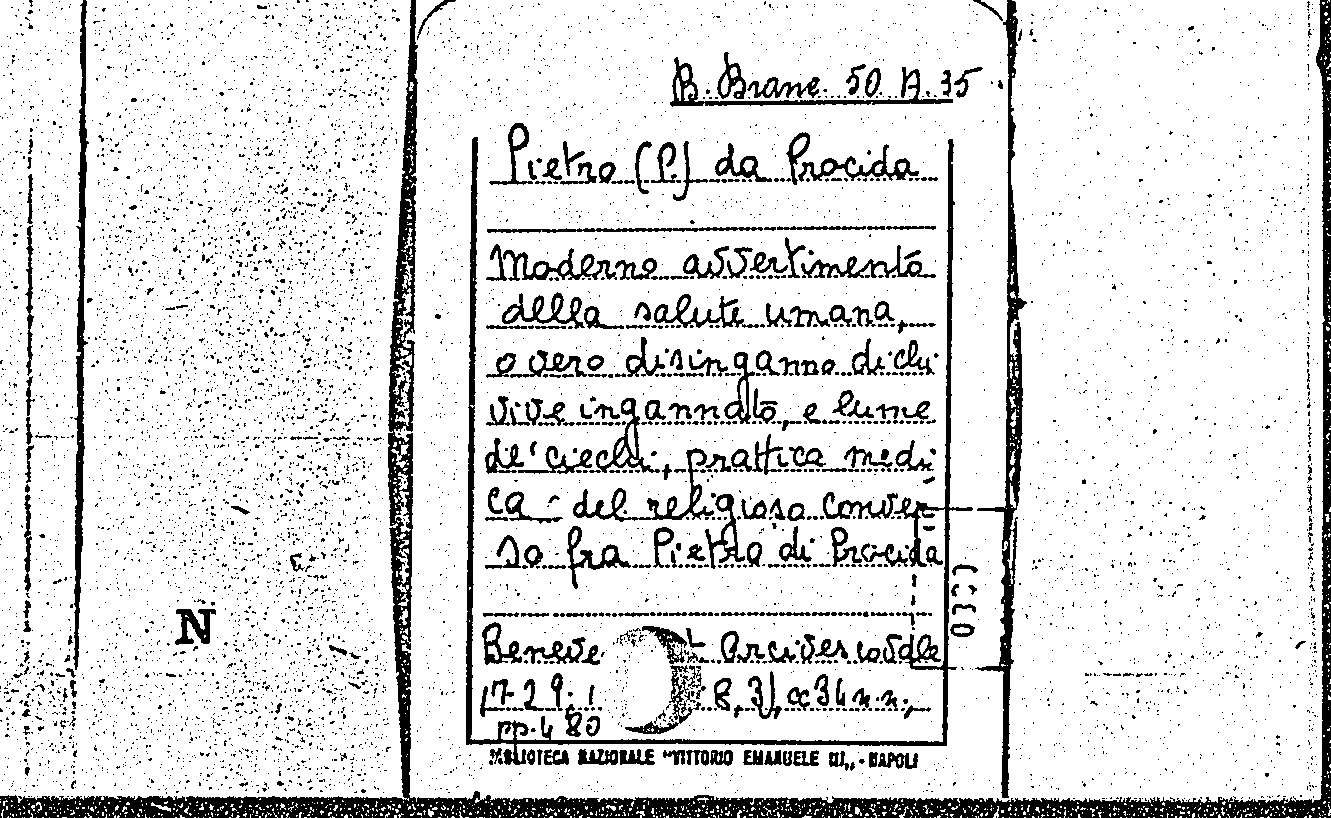 B. Branc. 50 A. 35
Pietro (P.) da Procida
Moderno avvertimento
della salute umana,
o vero disinganno di chi
vive ingannato, e lume
de' ciechi, prattica medi
ca - del religioso conver=
so fra Pietro di Procida
Beneve t Arcivescovale
1729. 1 8, 3), cc 34 n.n.,
pp. 480
BIBLIOTECA NAZIONALE "VITTORIO EMANUELE III„ - NAPOLI
N